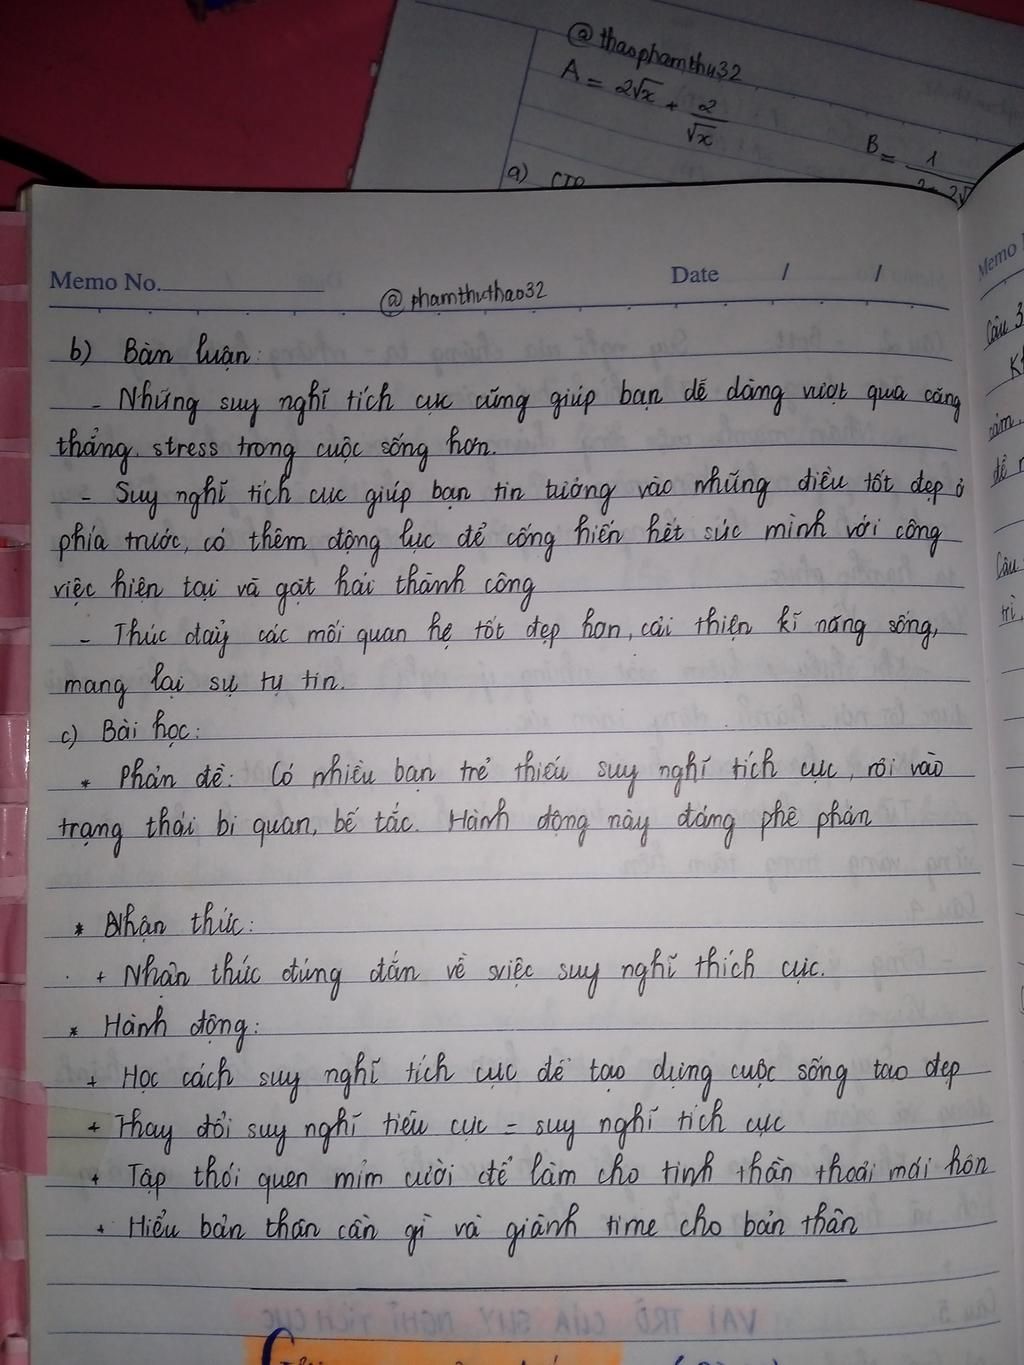 @thaophamthu32
A = 2√x + 2/√x
B = 1
a)
Memo No.
Date / /
@phamthuthao32
b) Bàn luận:
- Những suy nghĩ tích cực cũng giúp bạn dễ dàng vượt qua căng
thẳng, stress trong cuộc sống hơn.
- Suy nghĩ tích cực giúp bạn tin tưởng vào những điều tốt đẹp ở
phía trước, có thêm động lực để cống hiến hết sức mình với công
việc hiện tại và gặt hái thành công
- Thúc đẩy các mối quan hệ tốt đẹp hơn, cải thiện kĩ năng sống,
mang lại sự tự tin.
c) Bài học:
* Phản đề: Có nhiều bạn trẻ thiếu suy nghĩ tích cực, rơi vào
trạng thái bi quan, bế tắc. Hành động này đáng phê phán
* Nhận thức:
+ Nhận thức đúng đắn về việc suy nghĩ thích cực.
* Hành động:
+ Học cách suy nghĩ tích cực để tạo dựng cuộc sống tao đẹp
+ Thay đổi suy nghĩ tiêu cực = suy nghĩ tích cực
+ Tập thói quen mỉm cười để làm cho tinh thần thoải mái hơn
+ Hiểu bản thân cần gì và giành time cho bản thân
Memo
Câu 3
cảm,
Câu
VAI TRÒ CỦA SUY NGHĨ TÍCH CỰC